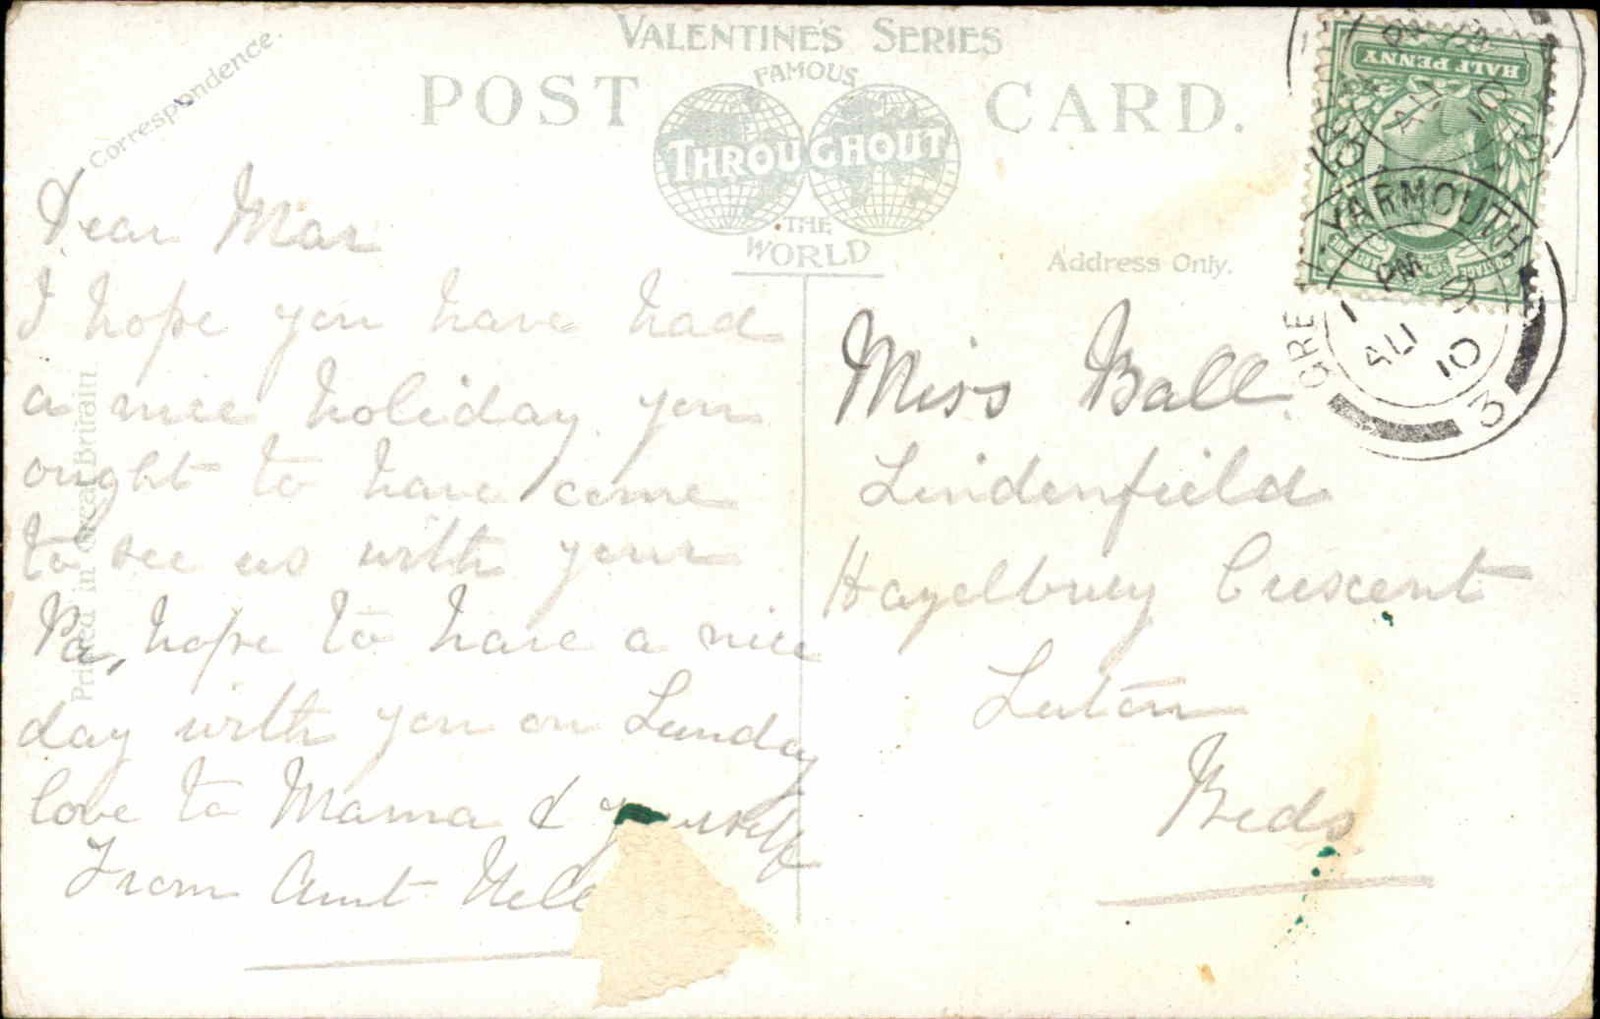 VALENTINE'S SERIES
FAMOUS
THROUGHOUT
THE
WORLD
POST CARD.
Correspondence.
Address Only.
Printed in Great Britain.
Dear Mar
I hope you have had
a nice holiday. you
ought to have come
to see us with your
Pa, hope to have a nice
day with you on Sunday
love to Mama & yourself
From Aunt Nell
Miss Ball.
Lindenfield
Hazelbury Crescent
Luton
Beds
HALF PENNY
POSTAGE
YARMOUTH
PM
AU
10
GRE
YARMOUTH
PM
AU
10
3